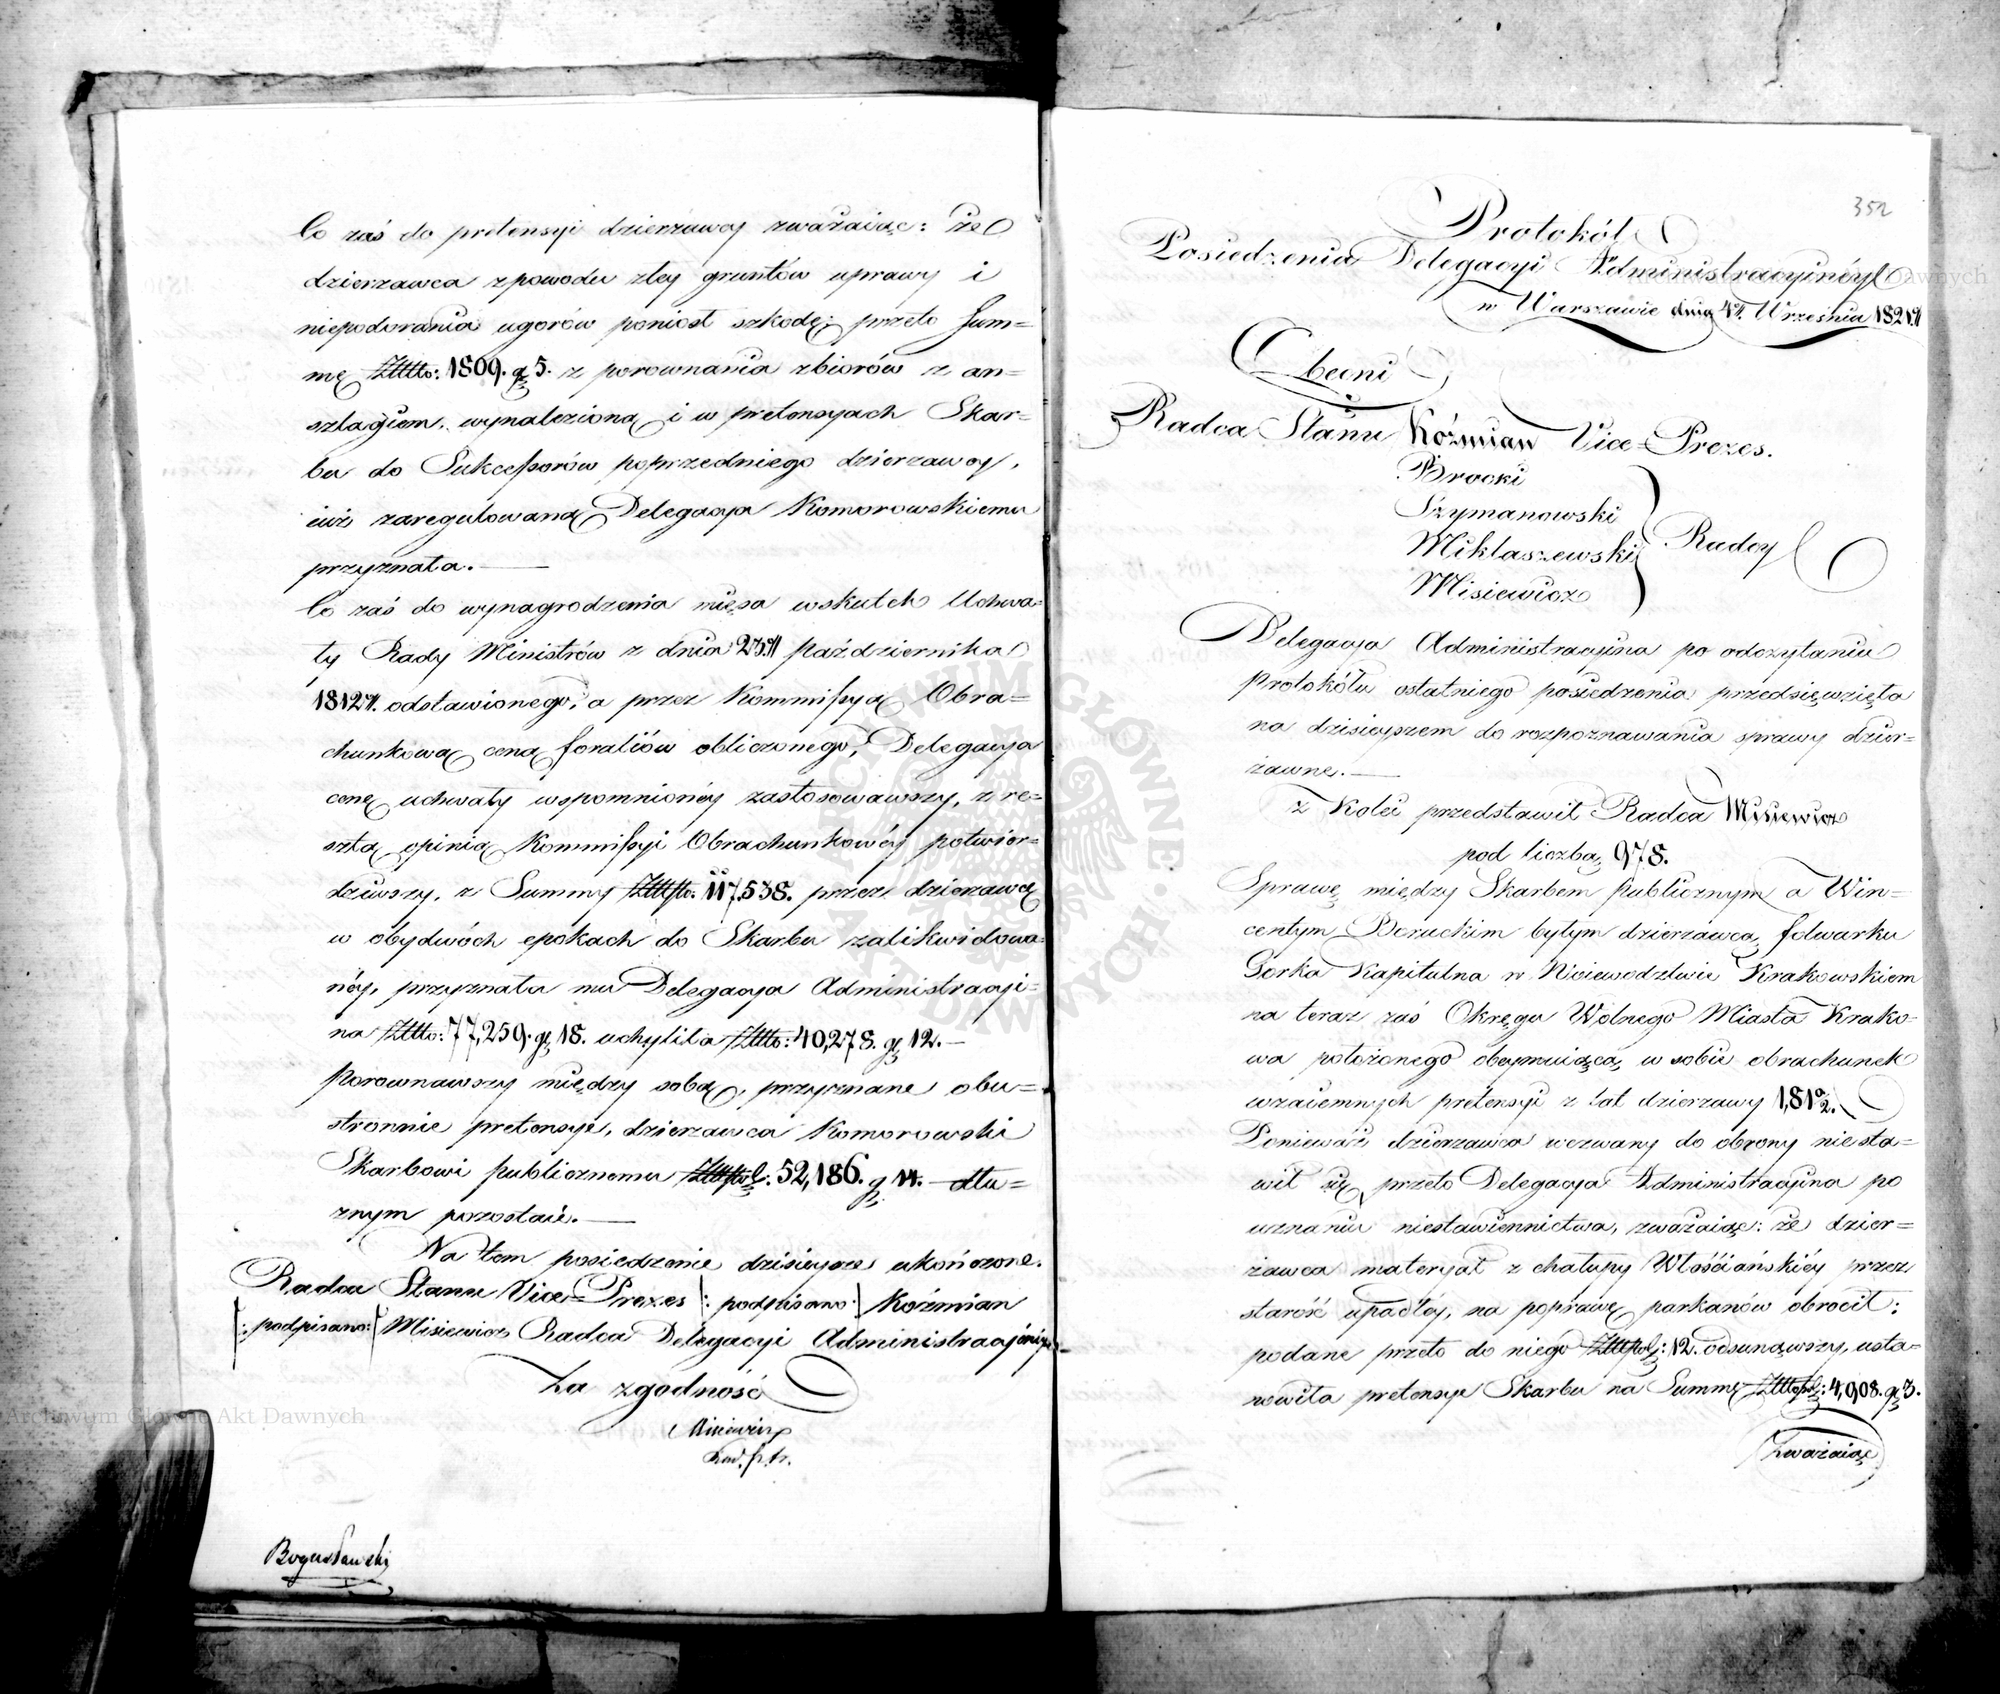 Co zaś do pretensyi dzierżawcy zważaiąc: że
dzierżawca z powodu złey gruntów uprawy i
niepodorania ugorów poniosł szkodę; przeto Sum=
mę 1809. gr 5. z porownania zbiorów z an=
szlagiem, wynalezioną i w pretensyach Skar=
bu do Sukcessorów poprzedniego dzierżawcy,
iuż zaregulowaną Delegacya Komorowskiemu
przyznała.
Co zaś do wynagrodzenia mięsa wskutek Uchwa=
ły Rady Ministrów z dnia 23. października
1812 r. odstawionego, a przez Kommissyą Obra=
chunkową ceną foraliów obliczonego, Delegacya
cenę uchwały wspomnionéy zastosowawszy, z re=
sztą opinią Kommissyi Obrachunkowéy potwier=
dziwszy, z Summy 117,538. przez dzierżawcę
w obydwóch epokach do Skarbu zalikwidowa=
néy, przyznała mu Delegacya Administracyi=
na 77,259. gr 18. uchyliła 40,278. gr 12.
Porownawszy między sobą, przyznane obu=
stronnie pretensye, dzierżawca Komorowski
Skarbowi publicznemu 52,186. gr 14. dłu=
żnym pozostaie.
Na tem posiedzenie dzisieysze ukończone.
Radca Stanu Vice=Prezes /: podpisano :/ Koźmian
/: podpisano: / Misiewicz Radca Delegacyi Administracyinéy
Za zgodność
Misiewicz
Bogusławski
352
Protokół
Posiedzenia Delegacyi Administracyinéy
w Warszawie dnia 4 Września 1821 r.
Obecni
Radca Stanu Koźmian Vice=Prezes.
Brocki
Szymanowski
Miklaszewski Radcy
Misiewicz
Delegacya Administracyina po odczytaniu
Protokółu ostatniego posiedzenia przedsięwzięła
na dzisieyszem do rozpoznawania sprawy dzier=
żawne.
z Kolei przedstawił Radca Misiewicz
pod liczbą 978.
Sprawę między Skarbem publicznym a Win=
centym Boruckim byłym dzierżawcą folwarku
Gorka Kapitulna w Woiewodztwie Krakowskiem
na teraz zaś Okręgu Wolnego Miasta Krako=
wa położonego obeymuiącą w sobie obrachunek
wzaiemnych pretensyi z lat dzierżawy
Ponieważ dzierżawca wezwany do obrony nie sta=
wił się, przeto Delegacya Administracyina po
uznaniu niestawiennictwa, zważaiąc: że dzier=
żawca materyał z chałupy Włościańskiéy przez
starość upadłéy, na poprawę parkanów obrocił:
podane przeto do niego 12. odsunąwszy, usta=
nowiła pretensye Skarbu na Summę 4,908. gr 3.
Zważaiąc
Archiwum Główne Akt Dawnych
ARCHIWUM GŁÓWNE AKT DAWNYCH